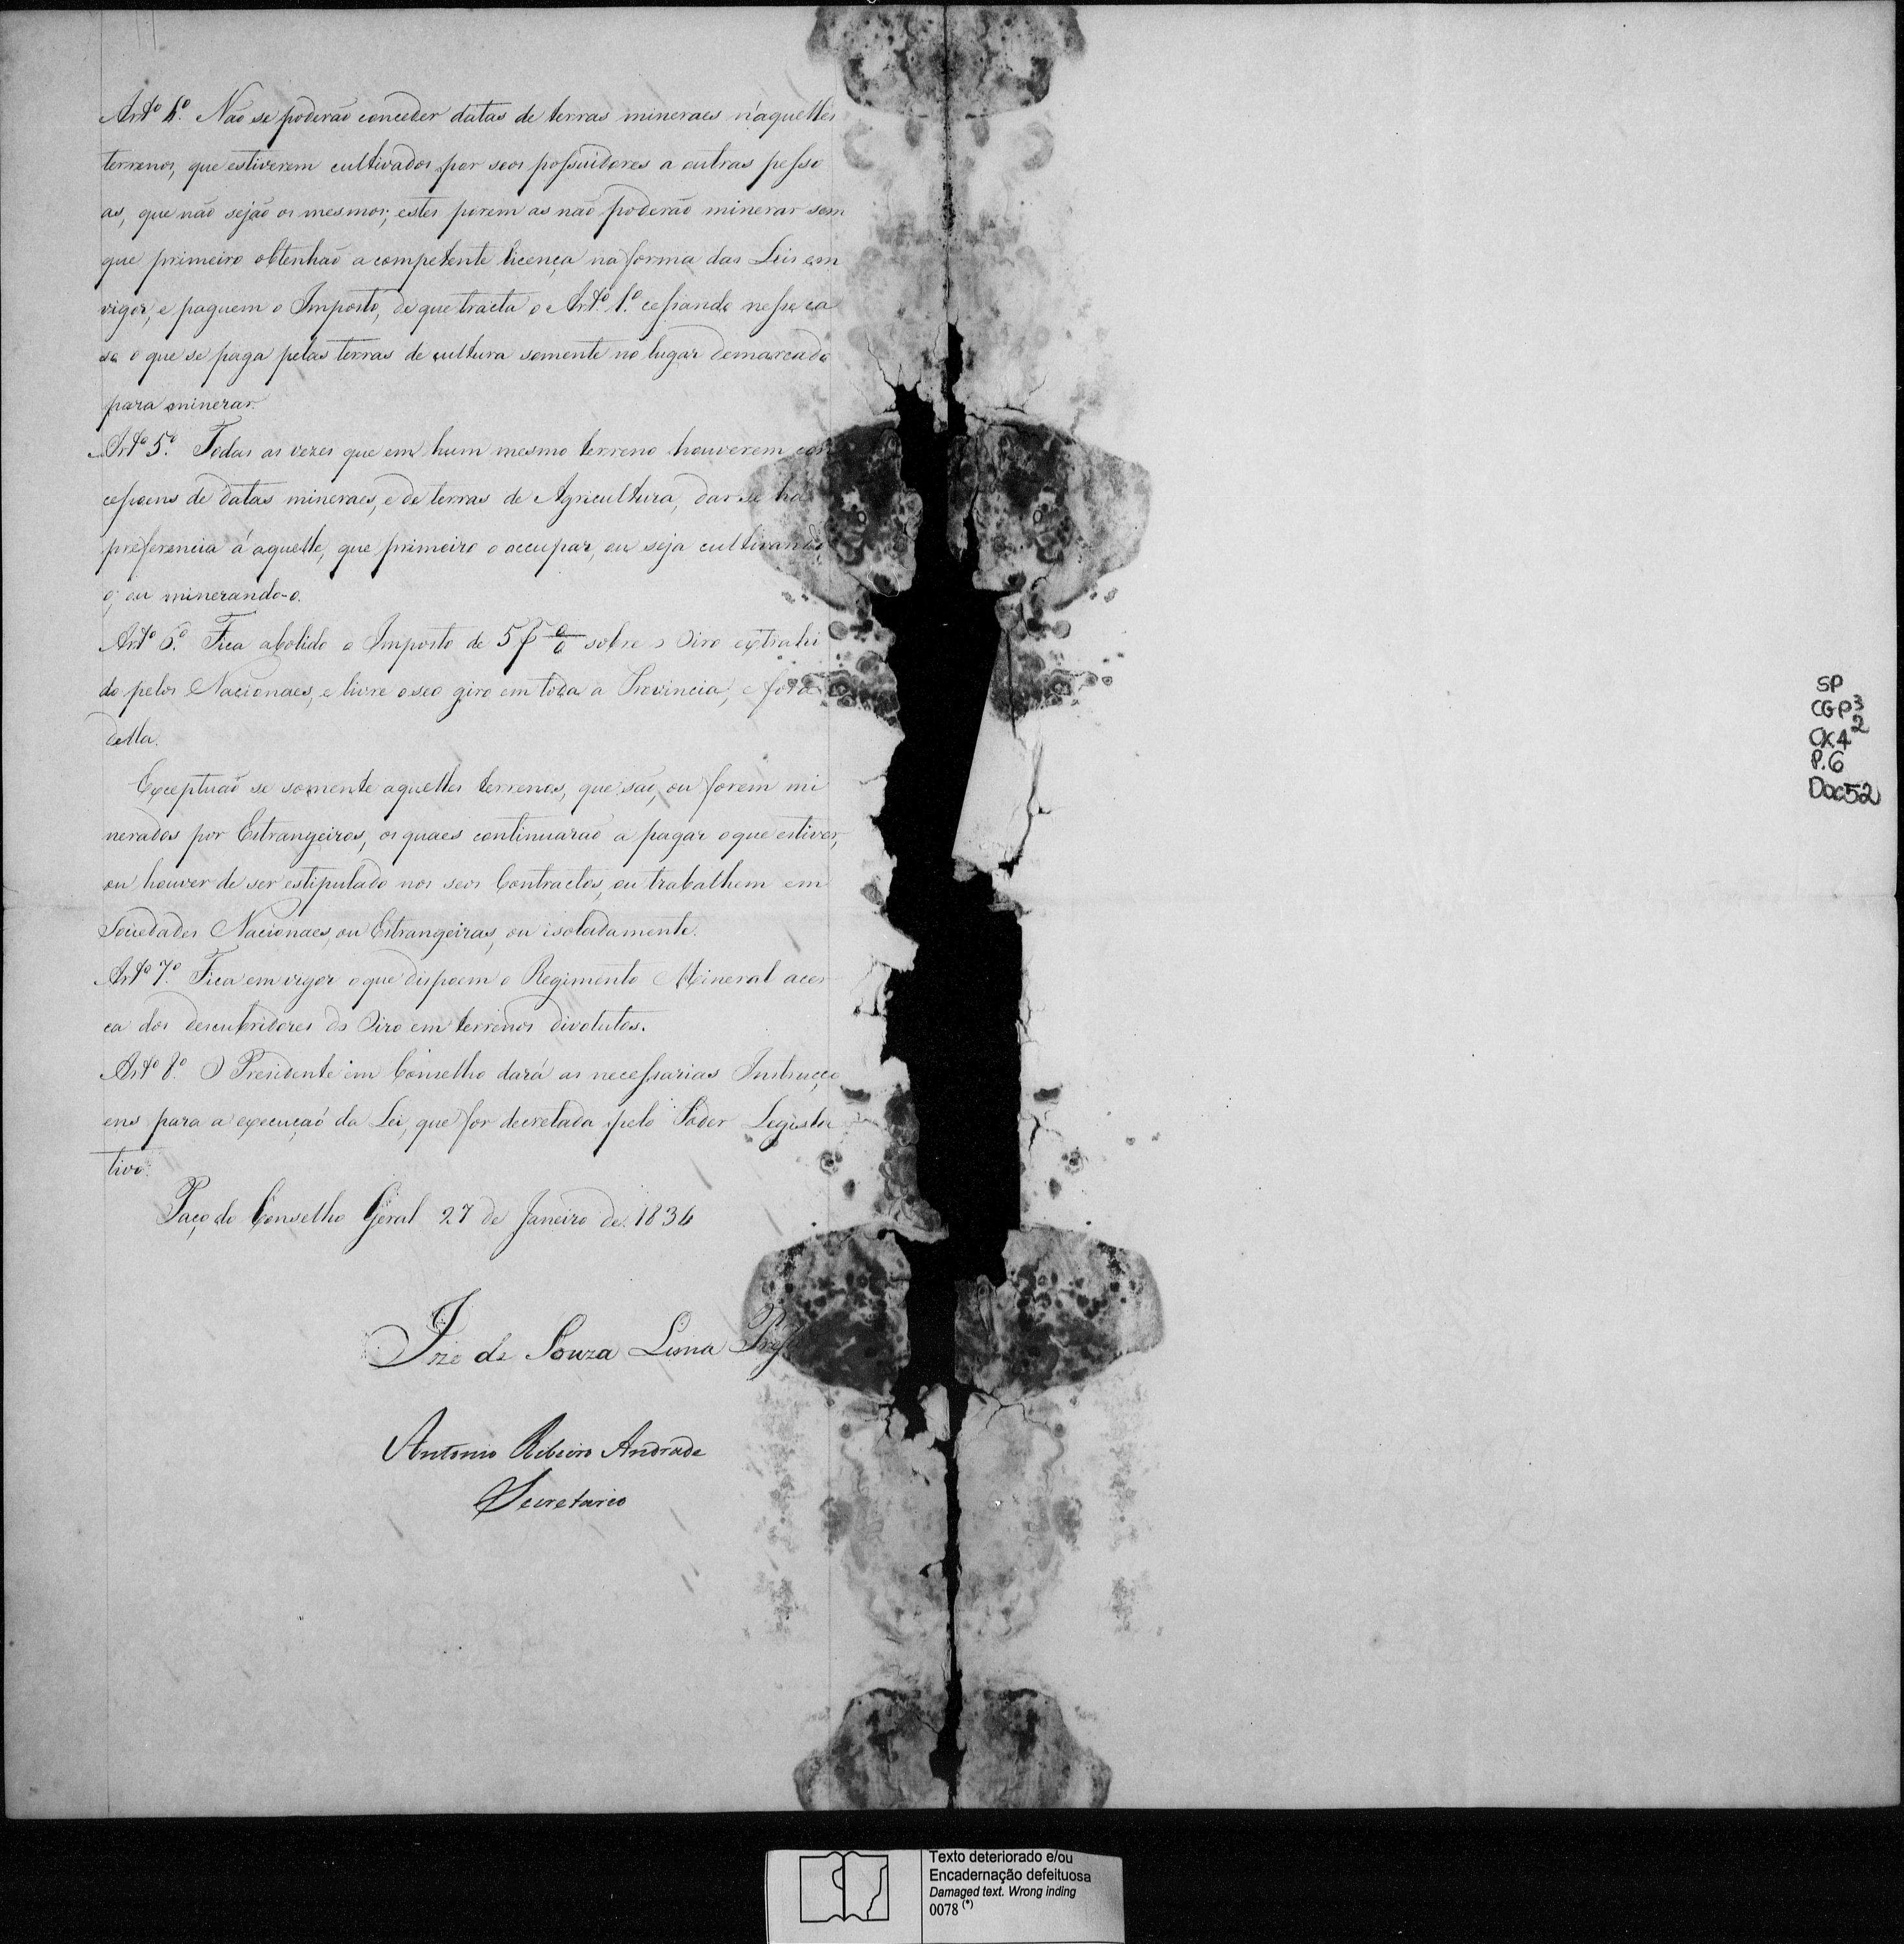 Artº 4º. Não se poderão conceder datas de terras mineraes n'aquelles
terrenos, que estiverem cultivados por seos possuidores a outras pesso
as, que não sejão os mesmos; estes porem as não poderão minerar sem
que primeiro obtenhão a competente licença na forma das Leis em
vigor, e paguem o Imposto, de que tracta o Artº. 1º. cessando nesse ca
so o que se paga pelas terras de cultura somente no lugar demarcado
para minerar.
Artº 5º. Todas as vezes que em hum mesmo terreno houverem con
cessoens de datas mineraes, e de terras de Agricultura, dar se ha
preferencia á aquelle, que primeiro o occupar, ou seja cultivando
o, ou minerando-o.
Artº 6º. Fica abolido o Imposto de 5 p% sobre o Oiro extrahi
do pelos Nacionaes, e livre o seo giro em toda a Provincia, e fora
della.
Exceptuão se somente aquelles terrenos, que são, ou forem mi
nerados por Estrangeiros, os quaes continuarão a pagar o que estiver,
ou houver de ser estipulado nos seos Contractos, ou trabalhem em
Sociedades Nacionaes, ou Estrangeiras, ou isoladamente.
Artº 7º. Fica em vigor o que dispoem o Regimento Mineral acer
ca dos descubridores do Oiro em terrenos divolutos.
Artº 8º. O Presidente em Conselho dará as necessarias Instrucço
ens para a execução da Lei, que for decretada pelo Poder Legisla
tivo.
Paço do Conselho Geral 27 de Janeiro de 1834
Joze de Souza Lima
Antonio Ribeiro Andrade
Secretario
SP
CGP3
2
CX4
P.6
Doc52
Texto deteriorado e/ou
Encadernação defeituosa
Damaged text. Wrong inding
0078 (*)